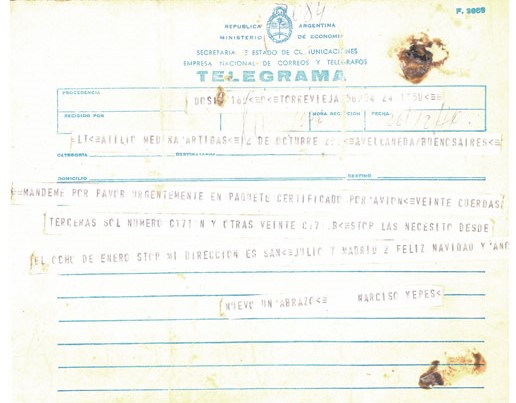 F. 3009
REPUBLICA ARGENTINA
MINISTERIO DE ECONOMIA
SECRETARIA DE ESTADO DE COMUNICACIONES
EMPRESA NACIONAL DE CORREOS Y TELEGRAFOS
TELEGRAMA
PROCEDENCIA
TORREVIEJA 36/34 24 1150
RECIBIDO POR HORA RECEPCION FECHA
LT<ATILIO MEDINA ARTIGAS DE OCTUBRE AVELLANEDA/BUENOSAIRES<≡
CATEGORIA DESTINATARIO
DOMICILIO DESTINO
≡MANDEME POR FAVOR URGENTEMENTE EN PAQUETE CERTIFICADO POR AVION<≡VEINTE CUERDAS
TERCERAS SOL NUMERO C171 N Y OTRAS VEINTE B<≡STOP LAS NECESITO DESDE
EL OCHO DE ENERO STOP MI DIRECCION ES SAN<≡JULIO 7 MADRID 2 FELIZ NAVIDAD Y ANO
NUEVO UN ABRAZO<≡ NARCISO YEPES<